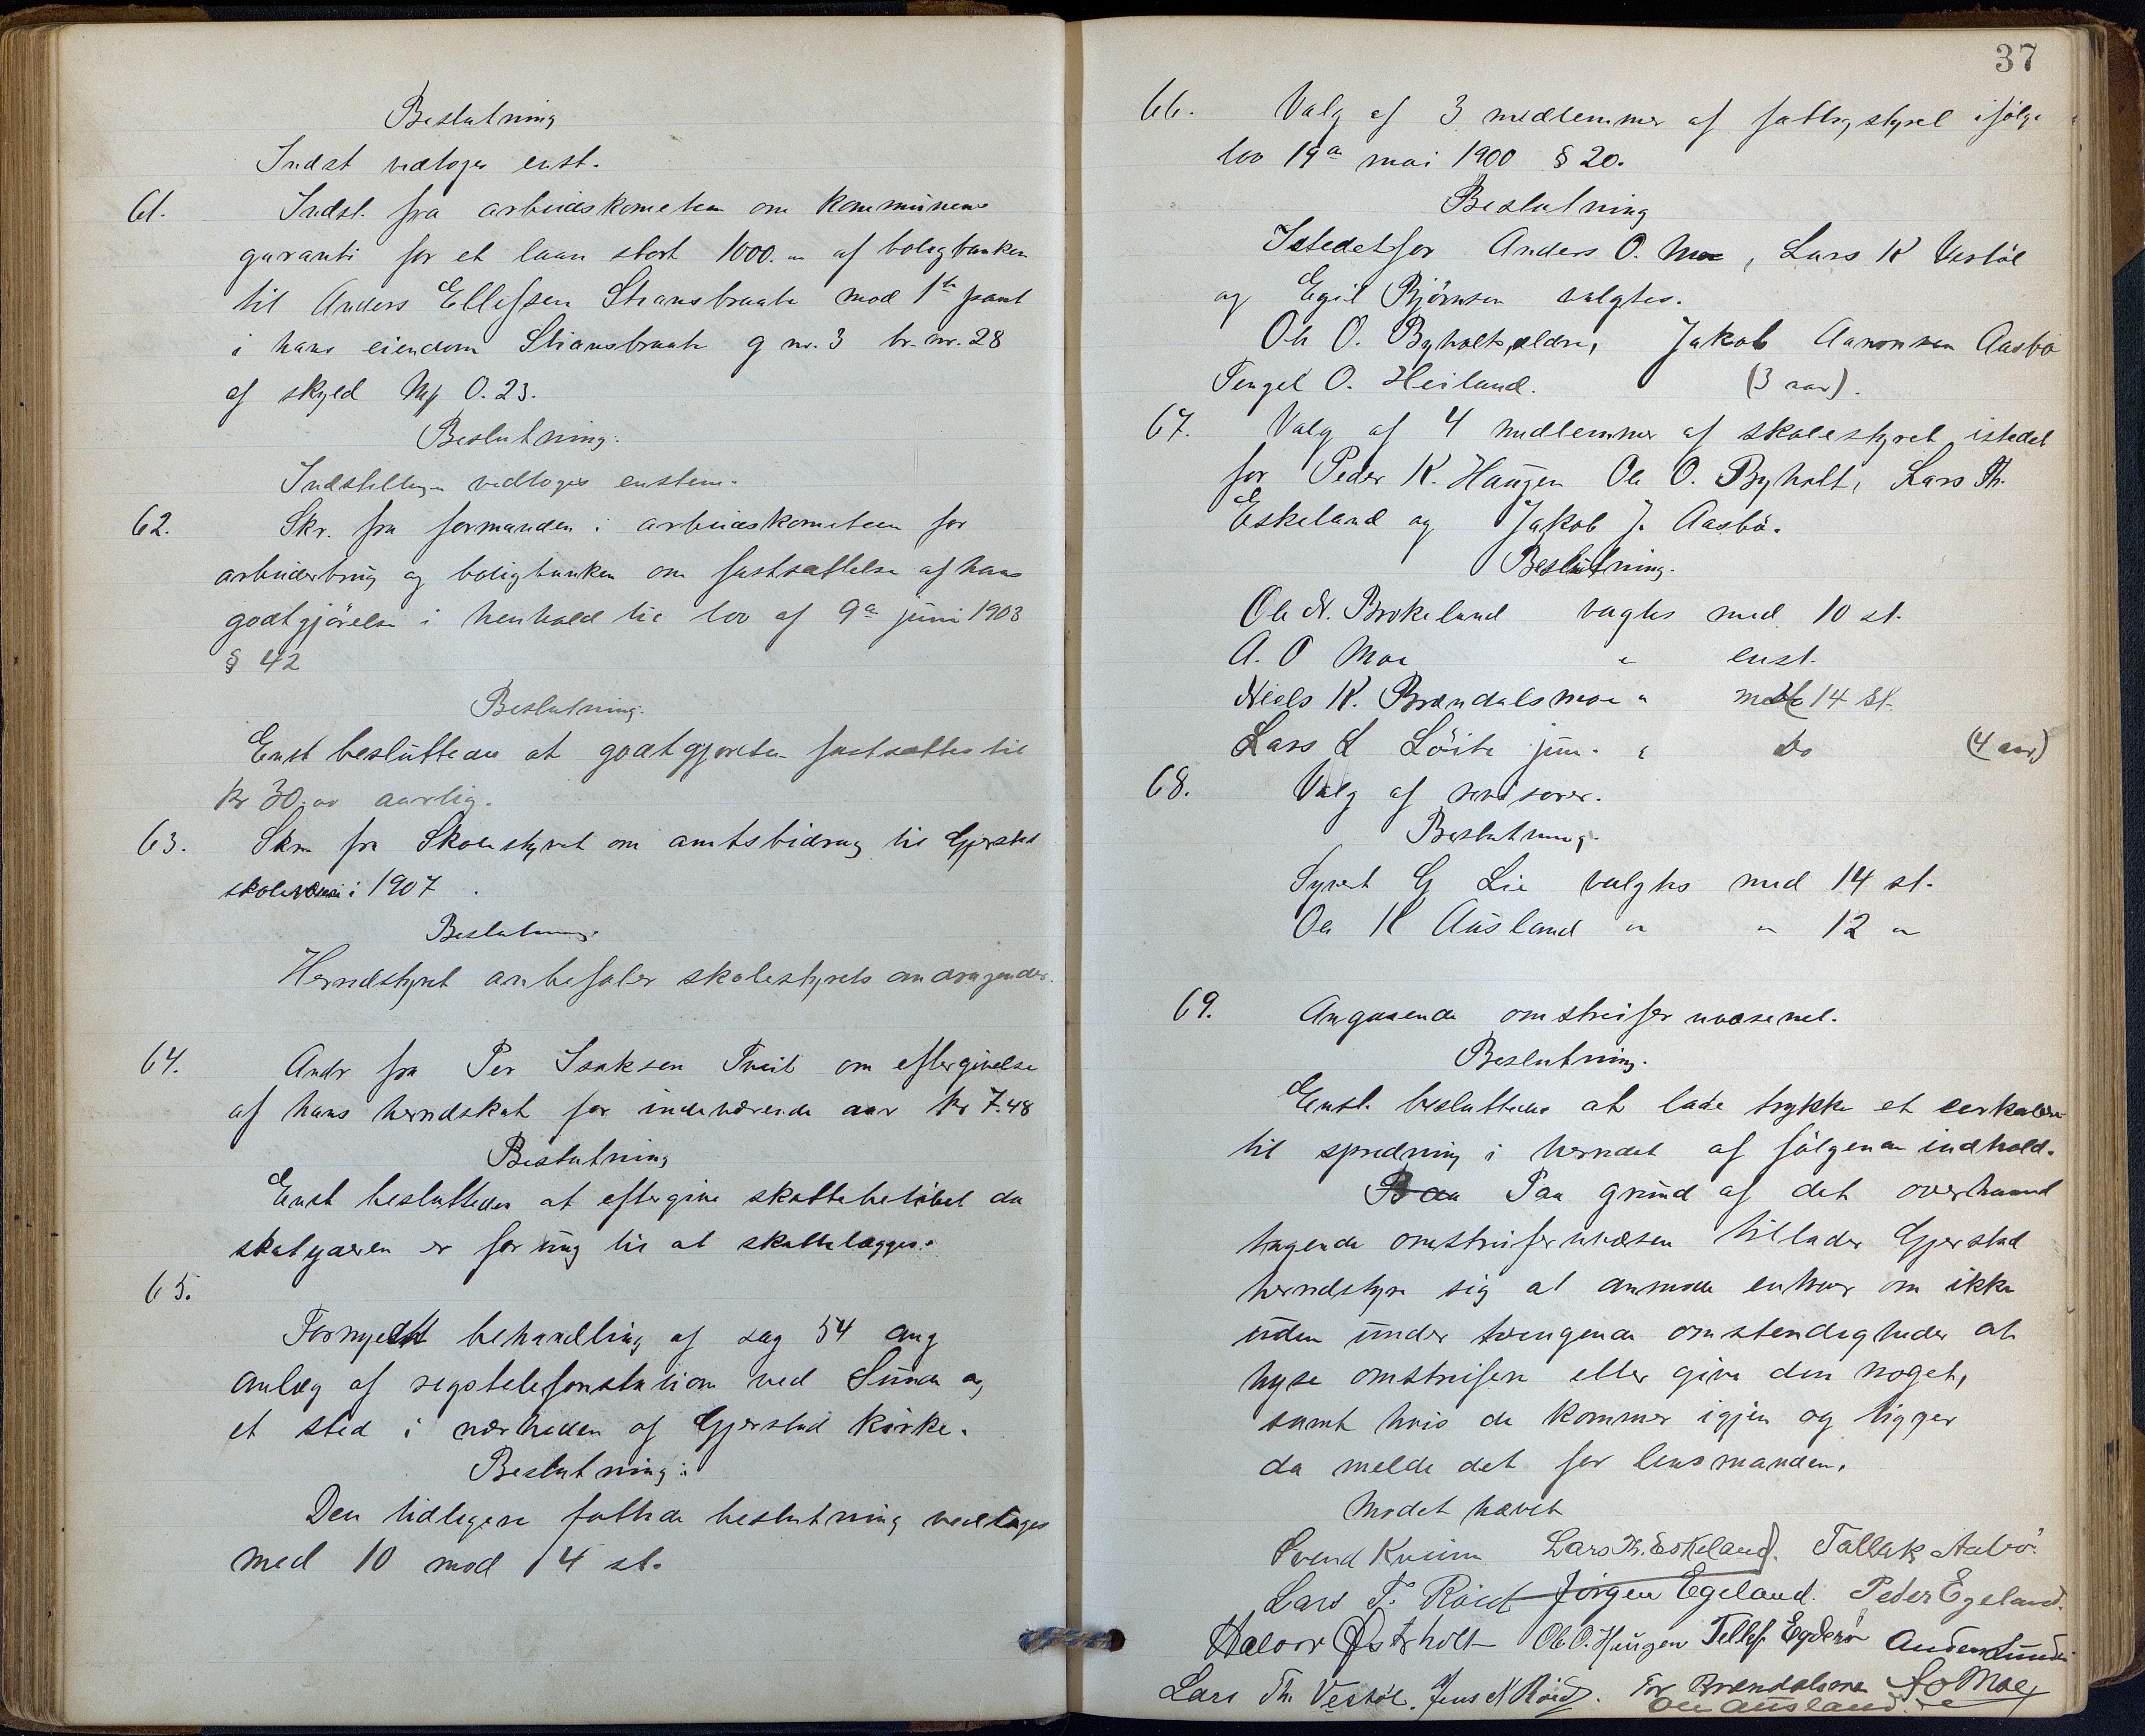 Beslutning
Indst vedtoges enst.
61. Indst. fra arbeidskometeen om kommunens
garanti for et laan stort 1000.00 af boligbanken
til Anders Ellefsen Stiansbraate mod 1ste pant
i hans eiendom Stiansbraate g nr. 3 br. nr. 28
af skyld Mk 0.23.
Beslutning:
Indstillingen vedtoges enstem.
62. Skr. fra formanden i arbeidskometeen for
arbeiderbrug og boligbanken om fastsættelse af hans
godtgjörelse i henhold til lov af 9de juni 1903
§ 42
Beslutning.
Enst besluttedes at godtgjörelsen fastsættes til
kr 30.00 aarlig.
63. Skr. fra Skolestyret om amtsbidrag til Gjerstad
skolevæsen i 1907.
Beslutning.
Herredstyret anbefaler skolestyrets andragender.
64. Andr fra Per Isaksen Tveit om eftergivelse
af hans herredskat for indeværende aar kr 7.48
Beslutning
Enst besluttedes at eftergive skattebelöbet da
skatyderen er for ung til at skattelægges.
65.
Fornyett behandling af sag 54 ang
anlæg af rigstelefonstation ved Sunde og
et sted i nærheden af Gjerstad kirke.
Beslutning:
Den tidligere fattede beslutning vedtoges
med 10 mod 4 st.
37
66. Valg af 3 medlemmer af fattigstyret ifölge
lov 19de mai 1900 § 20.
Beslutning
Istedetfor Anders O. Moe, Lars K Vestöl
og Egil Björnsen valgtes.
Ole O. Byholt, ældre, Jakob Aanonsen Aasbö
Tengel O. Heiland. (3 aar).
67. Valg af 4 medlemmer af skolestyret istedet
for Peder K. Haugen Ole O. Byholt, Lars Th.
Eskeland og Jakob J. Aasbö.
Beslutning.
Ole N. Brokeland valgtes med 10 st.
A. O Moe " enst.
Niels K. Brændalsmoe " med 14 st.
Lars L Löite jun. " do (4 aar)
68. Valg af revisorer.
Beslutning.
Syvert G Lie valgtes med 14 st.
Ole K Ausland " " 12 "
69. Angaaende omstreiferuvæsenet.
Beslutning.
Enst. besluttedes at lade trykke et cirkulære
til spredning i herredet af fölgende indhold.
Paa grund af det overhaand
tagende omstreiferuvæsen tillader Gjerstad
herredstyre sig at anmode enhver om ikke
uden under tvingende omstendigheder at
hyse omstreifere eller give dem noget,
samt hvis de kommer igjen og tigger
da melde det for lensmanden.
Mödet hævet
Svend Kveim Lars Th. Eskeland. Tallak Aasbö.
Lars T. Röed Jörgen Egeland. Peder Egeland.
Halvor Østerholt Ole O. Haugen Tellef Egderö Anders Sunde
Lars Th. Vestöl. Jens N Röed. Tor Brændalsmo A O Moe
Ole Ausland.